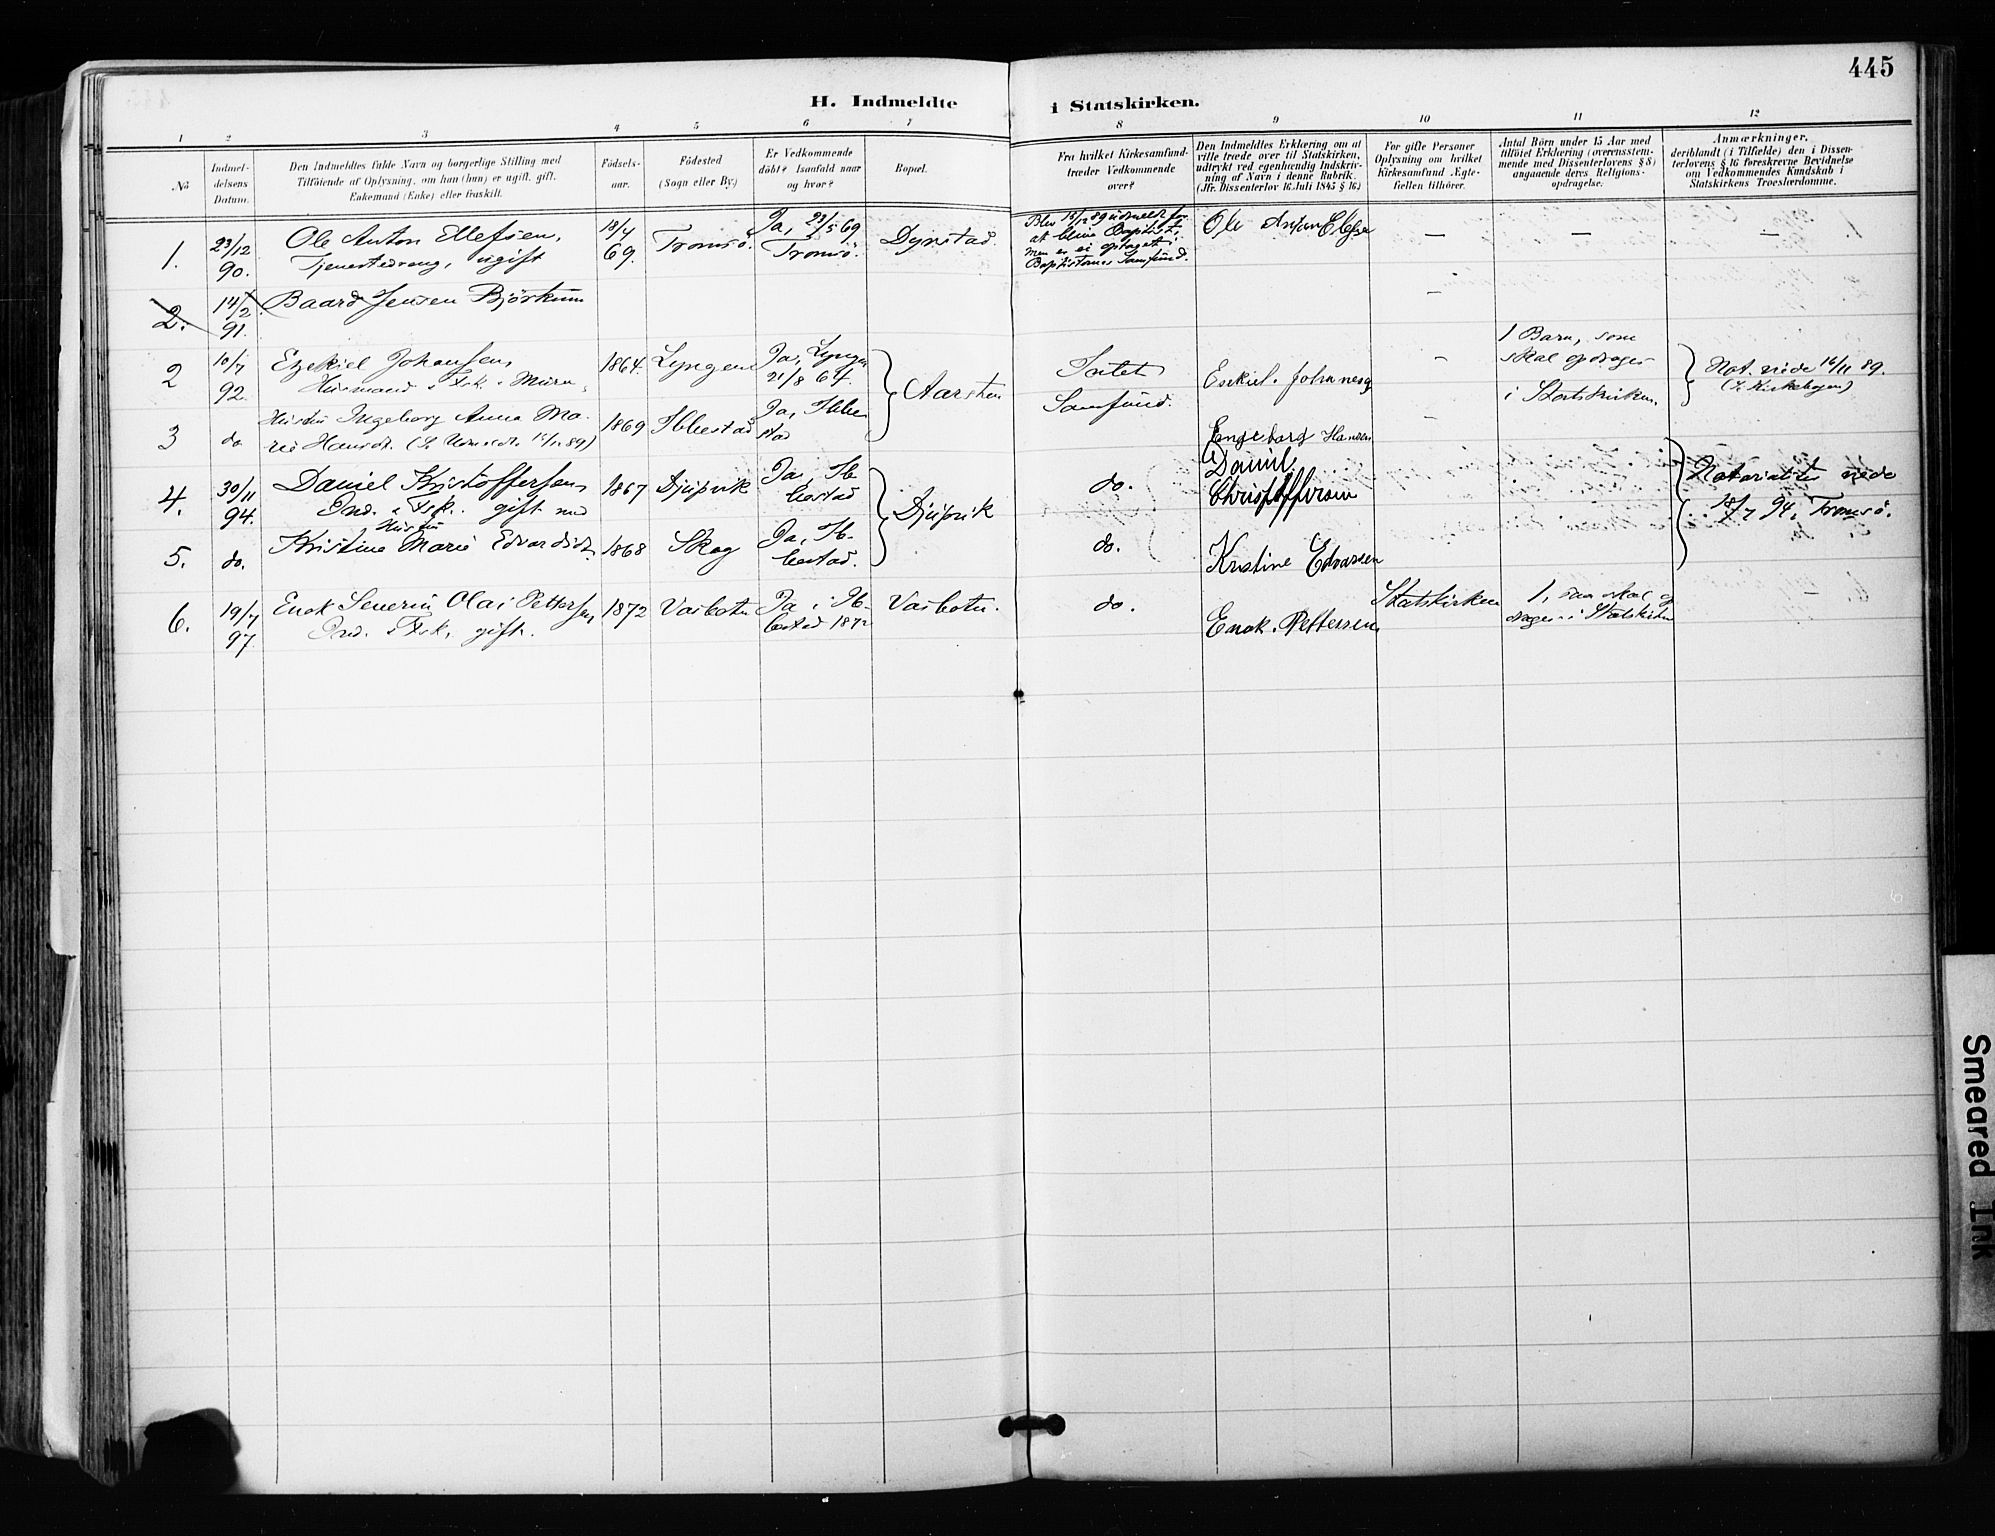 445
H. Indmeldte i Statskirken.
1 2 3 4 5 6 7 8 9 10 11 12
No
Indmel-
delsens
Datum.
Den Indmeldtes fulde Navn og borgerlige Stilling med
Tilföiende af Oplysning, om han (hun) er ugift, gift,
Enkemand (Enke) eller fraskilt.
Födsels-
aar.
Födested
(Sogn eller By.)
Er Vedkommende
döbt? Isaafald naar
og hvor?
Bopæl.
Fra hvilket Kirkesamfund
træder Vedkommende
over?
Den Indmeldtes Erklæring om at
ville træde over til Statskirken,
udtrykt ved egenhændig Indskriv-
ning af Navn i denne Rubrik.
(Jfr. Dissenterlov 16 Juli 1845 § 16)
For gifte Personer
Oplysning om hvilket
Kirkesamfund Ægte-
fællen tilhörer.
Antal Börn under 15 Aar med
tilföiet Erklæring (overensstem-
mende med Dissenterlovens § 8)
angaaende deres Religions-
opdragelse.
Anmærkninger,
deriblandt (i Tilfælde) den i Dissen-
terlovens § 16 foreskrevne Bevidnelse
om Vedkommendes Kundskab i
Statskirkens Troeslærdomme.
1.
23/12
90.
Ole Anton Ellefsen,
Tjenestedreng, ugift
18/4
69.
Tromsö.
Ja, 23/5 69
Tromsö.
Dyrstad.
Blev 15/12 89 udmeldt for
at blive Baptist,
men er ei optaget i
Baptisternes Samfund.
Ole Anton Ellefsen
— — —
2.
14/2
91.
Baard Jensen Björkum
—
2
10/7
92.
Ezekiel Johansen,
Husmand & Fsk.
1864.
Lyngen
Ja, Lyngen
21/8 64.
Aarsten
Intet
Samfund.
Esekiel. Johannesen
—
1 Barn, som
skal opdrages
i Statskirken.
Not. nöde 16/11 89.
(S. Kirkebogen)
3
do.
Hustru Ingeborg Anna Ma-
rie Hansdt.
1869
Ibbestad
Ja, Ibbe
stad
Engeborg Hansen
—
4.
30/11
94.
Daniel Kristoffersen,
Grd. & Fsk. gift med
1867
Djupvik
Ja, Ib
bestad
Djupvik
do.
Daniel
Christoffersen
Notarialiter nöde
18/7 94, Tromsö.
5.
do.
Hustru
Kristine Marie Edvardsdt.
1868
Skog
Ja, Ib-
bestad.
do.
Kristine Edvarsen
6.
19/7
97.
Enok Severin Olai Pettersen,
Grd. & Fsk, gift.
1872
Vasbotn
Ja i Ib-
bestad 1872
Vasbotn.
do.
Enok. Pettersen
Statskirken
1, som skal op
drages i Statskirken
Smeared Ink